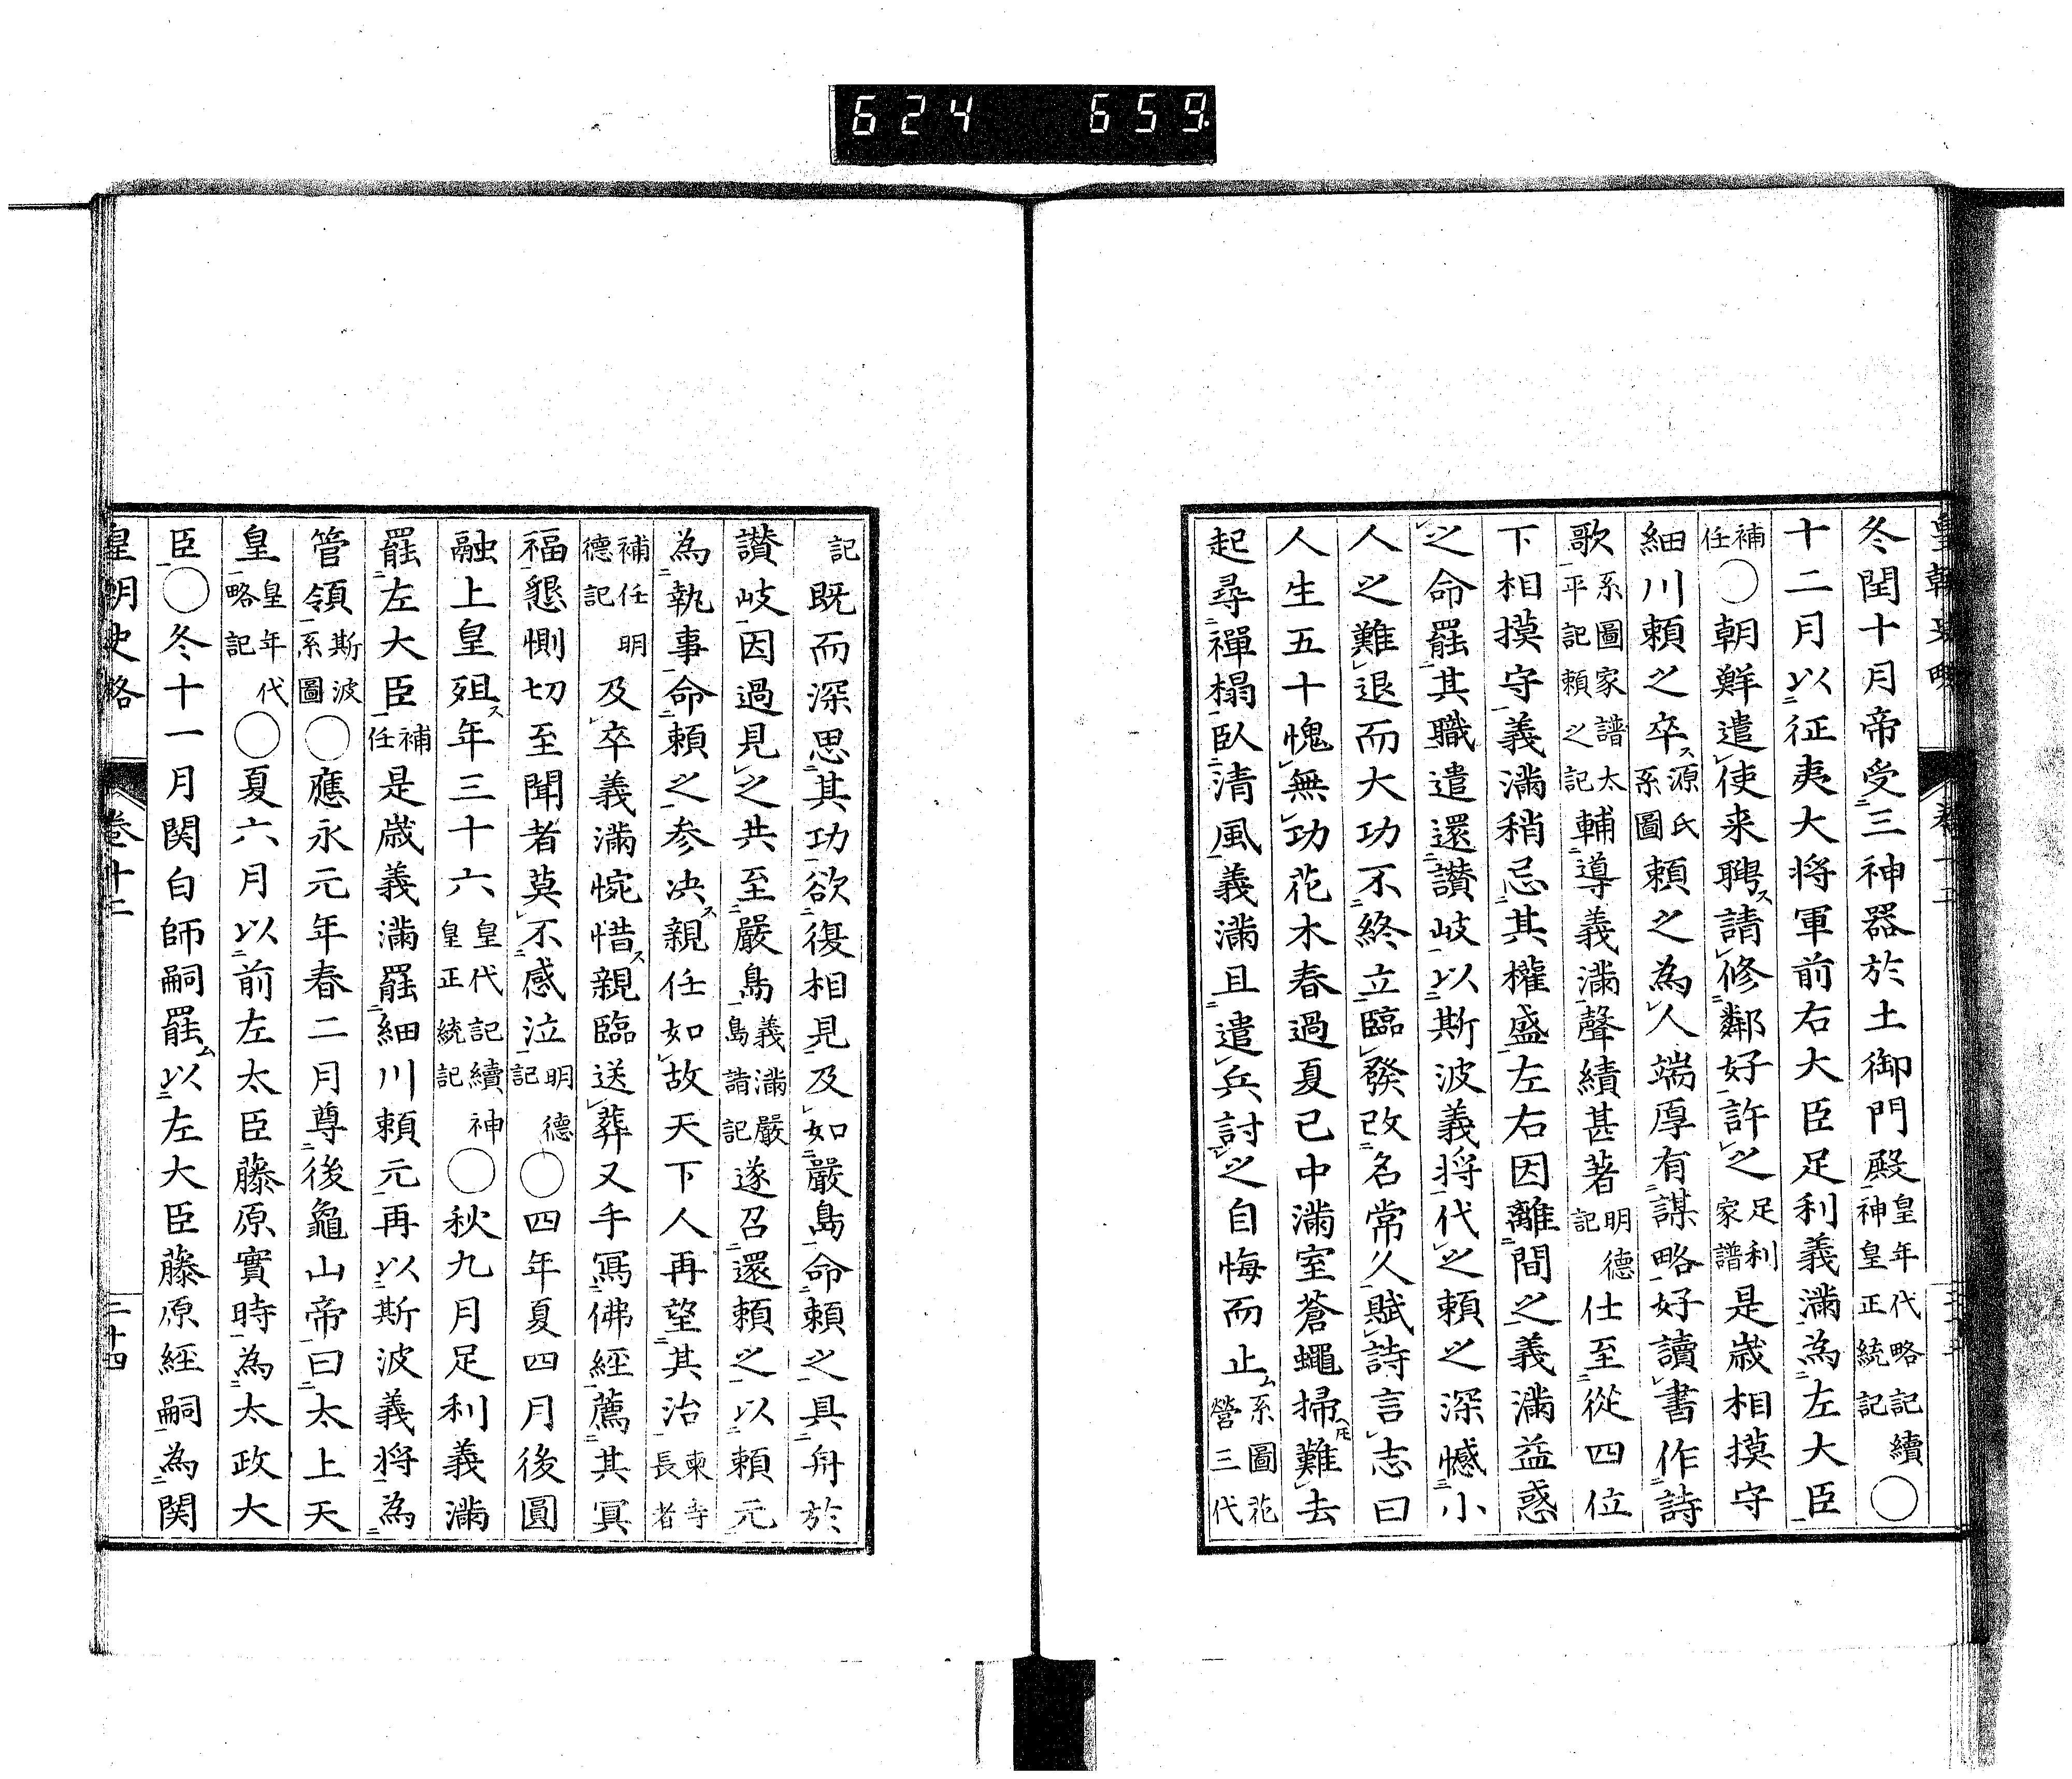 624 659.
冬閏十月帝受三神器於土御門殿皇年代略記續神皇正統記○
十二月以征夷大将軍前右大臣足利義滿為左大臣
補任○朝鮮遣使来聘請修鄰好許之足利家譜是歳相摸守
細川頼之卒源氏系圖頼之為人端厚有謀略好讀書作詩
歌系圖家譜太平記頼之記輔導義滿聲績甚著明德記仕至從四位
下相摸守義滿稍忌其權盛左右因離間之義滿益惑
之命罷其職遣還讃岐以斯波義将代之頼之深憾小
人之難退而大功不終立臨發改名常久賦詩言志曰
人生五十愧無功花木春過夏已中滿室蒼蠅掃難去
起尋禪榻臥清風義滿且遣兵討之自悔而止系圖花營三代
記既而深思其功欲復相見及如嚴島命頼之具舟於
讃岐因過見之共至嚴島義滿嚴島詣記遂召還頼之以頼元
為執事命頼之参决親任如故天下人再望其治東寺長者
補任明德記及卒義滿惋惜親臨送葬又手寫佛經薦其冥
福懇惻切至聞者莫不感泣明德記○四年夏四月後圓
融上皇殂年三十六皇代記續神皇正統記○秋九月足利義滿
罷左大臣補任是歳義滿罷細川頼元再以斯波義将為
管領斯波系圖○應永元年春二月尊後龜山帝曰太上天
皇皇年代略記○夏六月以前左太臣藤原實時為太政大
臣○冬十一月関白師嗣罷以左大臣藤原經嗣為関
皇朝史略 卷十二 二十四